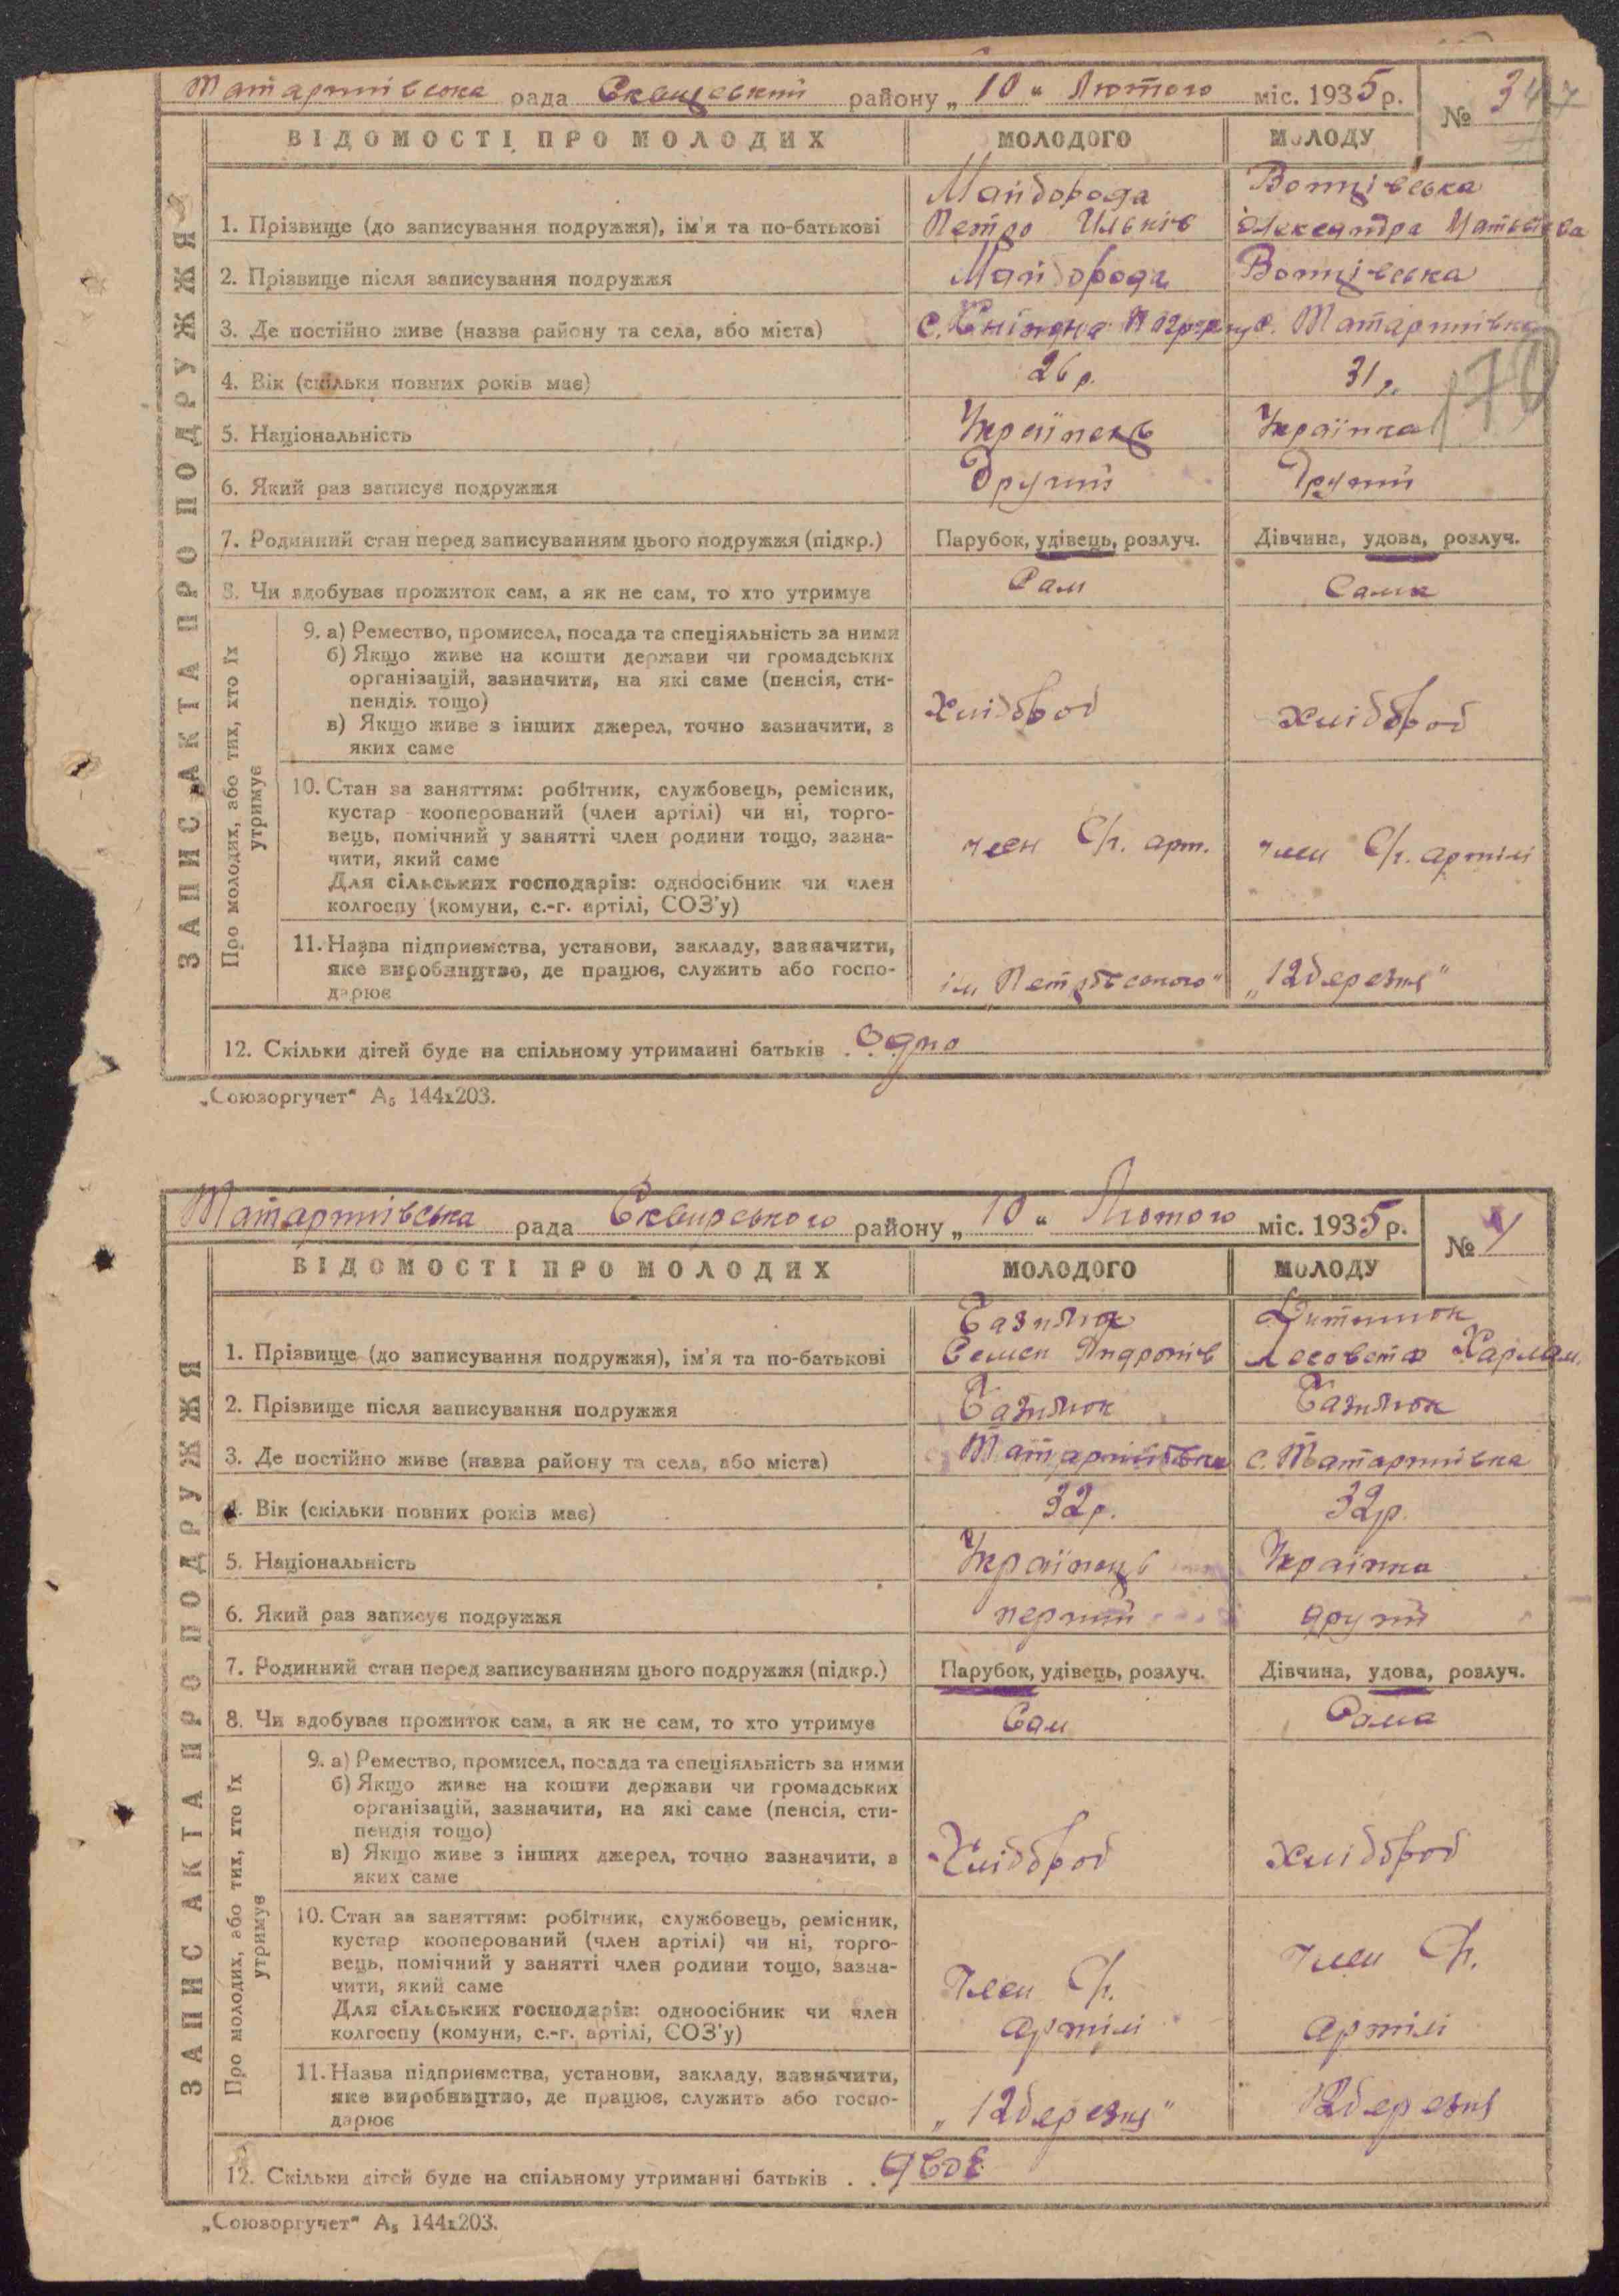 Татарпівська рада Сквирський району „ 10 “ Лютого міс. 1935 р. № 3
ВІДОМОСТІ ПРО МОЛОДИХ МОЛОДОГО МОЛОДУ
Майборода
1. Прізвище (до записування подружжя), ім'я та по-батькові Петро Ильків Александра
2. Прізвище після записування подружжя Майборода
3. Де постійно живе (назва району та села, або міста) с. с.
4. Вік (скільки повних років має) 26 р. 31 р.
170
5. Національність Українець Українка
6. Який раз записує подружжя Другий Другий
7. Родинний стан перед записуванням цього подружжя (підкр.) Парубок, удівець, розлуч. Дівчина, удова, розлуч.
8. Чи здобуває прожиток сам, а як не сам, то хто утримує Сам Сама
ЗАПИС АКТА ПРО ПОДРУЖЖЯ
Про молодих, або тих, хто їх утримує
9. а) Ремество, промисел, посада та спеціяльність за ними
б) Якщо живе на кошти держави чи громадських
організацій, зазначити, на які саме (пенсія, сти-
пендія тощо) Хлібороб хлібороб
в) Якщо живе з інших джерел, точно зазначити, з
яких саме
10. Стан за заняттям: робітник, службовець, ремісник,
кустар кооперований (член артілі) чи ні, торго-
вець, помічний у занятті член родини тощо, зазна-
чити, який саме член С/г. арт. член С/г. артілі
Для сільських господарів: одноосібник чи член
колгоспу (комуни, с.-г. артілі, СОЗ'у)
11. Назва підприємства, установи, закладу, зазначити,
яке виробництво, де працює, служить або госпо-
дарює ім „Петровського“ „12 березня“
12. Скільки дітей буде на спільному утриманні батьків . . Одно
„Союзоргучет“ А₅ 144х203.
рада Сквирського району „ 10 “ Лютого міс. 1935 р. № 4
ВІДОМОСТІ ПРО МОЛОДИХ МОЛОДОГО МОЛОДУ
Базилюк
1. Прізвище (до записування подружжя), ім'я та по-батькові Семен Андронів Харлам.
2. Прізвище після записування подружжя Базилюк Базилюк
3. Де постійно живе (назва району та села, або міста) с.
4. Вік (скільки повних років має) 32 р. 32 р.
5. Національність Українець Українка
6. Який раз записує подружжя перший другий
7. Родинний стан перед записуванням цього подружжя (підкр.) Парубок, удівець, розлуч. Дівчина, удова, розлуч.
8. Чи здобуває прожиток сам, а як не сам, то хто утримує Сам Сама
ЗАПИС АКТА ПРО ПОДРУЖЖЯ
Про молодих, або тих, хто їх утримує
9. а) Ремество, промисел, посада та спеціяльність за ними
б) Якщо живе на кошти держави чи громадських
організацій, зазначити, на які саме (пенсія, сти-
пендія тощо)
в) Якщо живе з інших джерел, точно зазначити, з
яких саме Хлібороб хлібороб
10. Стан за заняттям: робітник, службовець, ремісник,
кустар кооперований (член артілі) чи ні, торго-
вець, помічний у занятті член родини тощо, зазна-
чити, який саме Член С/г. член С/г.
Для сільських господарів: одноосібник чи член
колгоспу (комуни, с.-г. артілі, СОЗ'у) артілі артілі
11. Назва підприємства, установи, закладу, зазначити,
яке виробництво, де працює, служить або госпо-
дарює „12 березня“ 12 березня
12. Скільки дітей буде на спільному утриманні батьків . . двоє
„Союзоргучет“ А₅ 144х203.